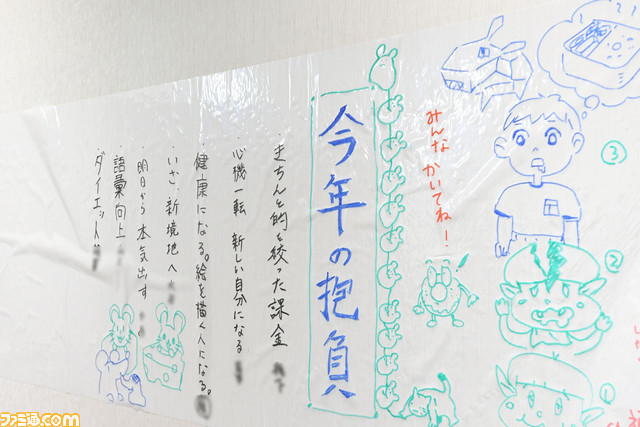 今年の抱負
みんな かいてね!
きちんと的を絞った課金
心機一転 新しい自分になる
健康になる。絵を描く人になる。
いざ、新境地へ
明日から本気出す
語彙向上
ダイエット!!
③
②
①
ファミ通.com